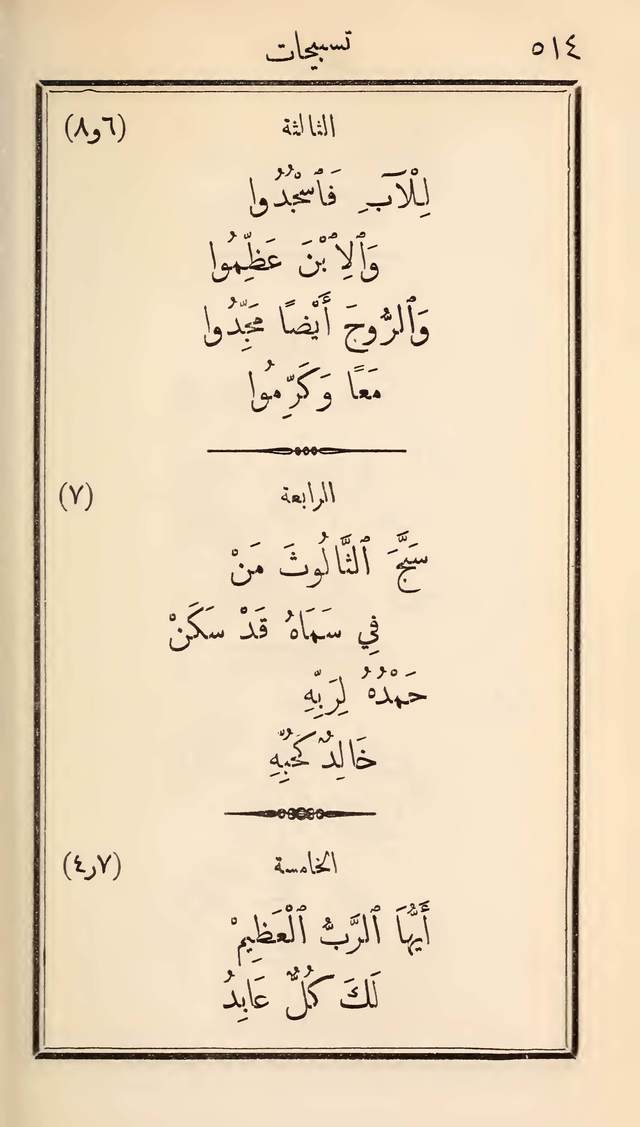 ٥١٤ تسبيحات
الثالثة (٦و٨)
لِلْآبِ فَٱسْجُدُوا
وَٱلِٱبْنَ عَظِّمُوا
وَٱلرُّوحَ أَيْضًا مَجِّدُوا
مَعًا وَكَرِّمُوا
الرابعة (٧)
سَبَّحَ ٱلثَّالُوثَ مَنْ
فِي سَمَاهُ قَدْ سَكَنْ
حَمْدُهُ لِرَبِّهِ
خَالِدٌ كَحُبِّهِ
الخامسة (٧ر٤)
أَيُّهَا ٱلرَّبُّ ٱلْعَظِيمْ
لَكَ كُلٌّ عَابِدُ